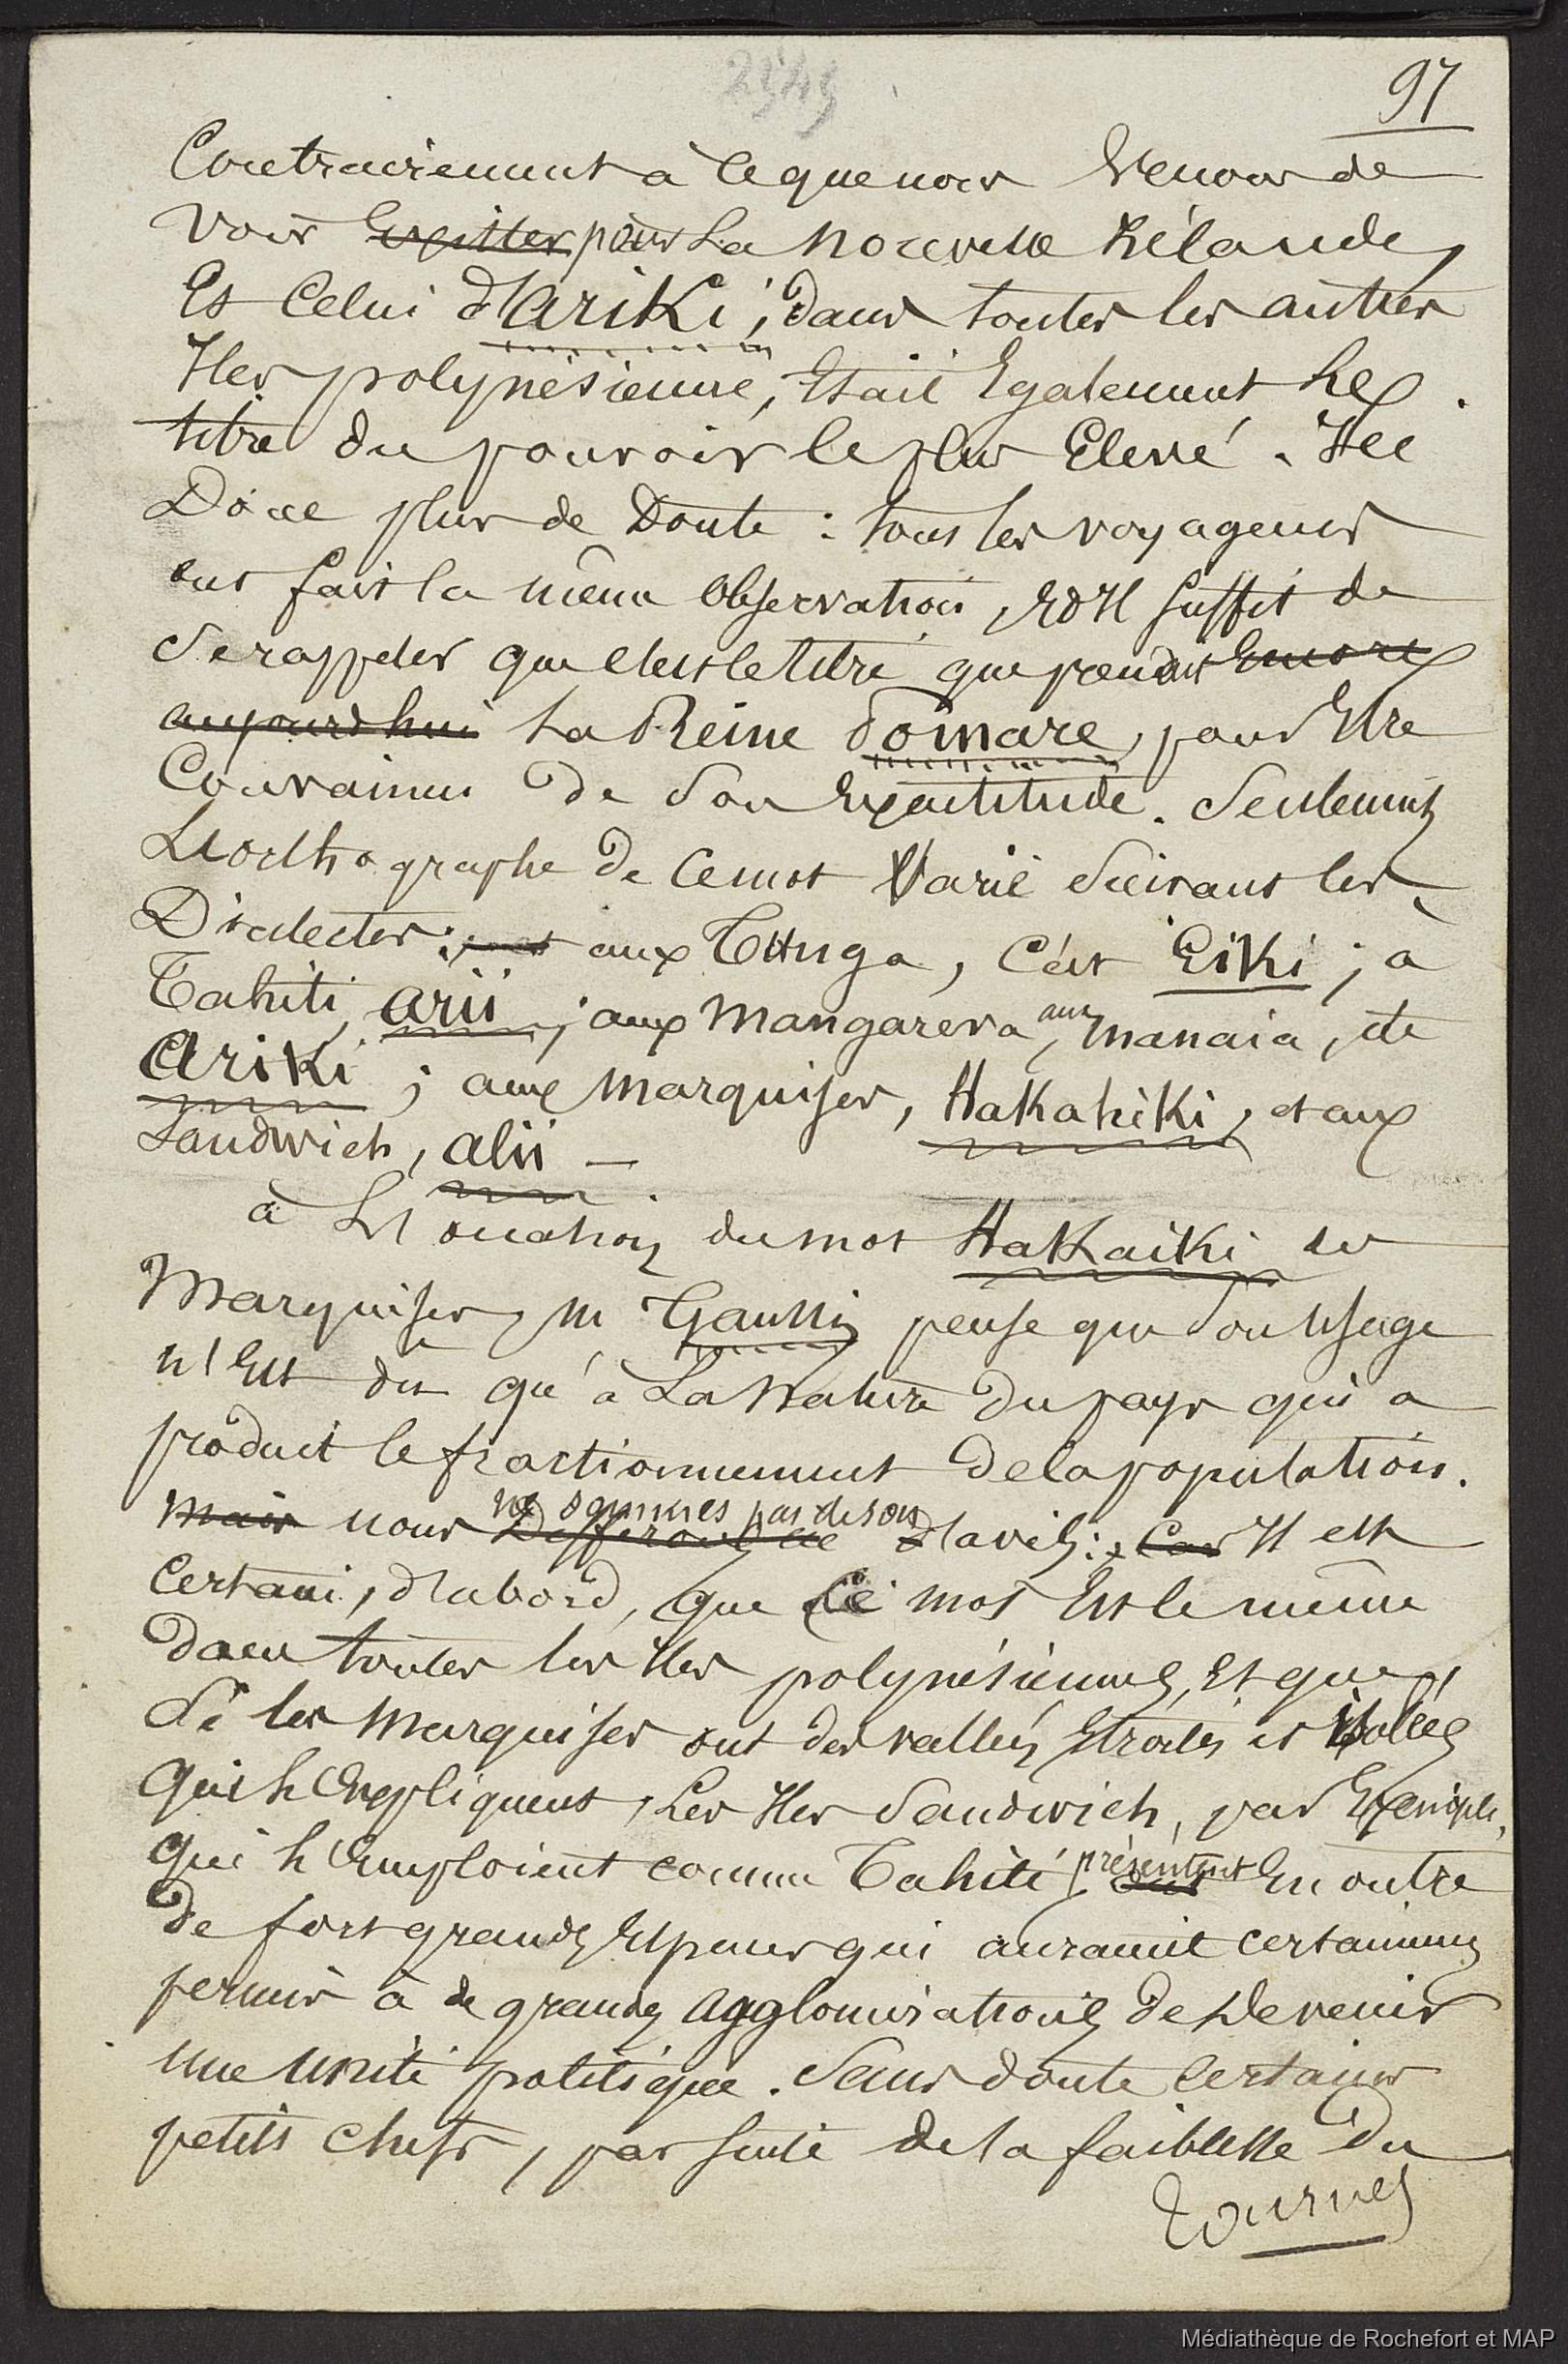 2545
97
Contrairement à ce que nous venons de
voir exister pour La nouvelle Zélande,
Et celui d'ariki, dans toutes les autres
Iles polynésienne, Etait Egalement Le
titre du pouvoir le plus Elevé. Ici
Donc plus de Doute : tous les voyageurs
ont fait la même observation, Et Il suffit de
Se rappeler que c'est le titre que prendt Encore
aujourd'hui La Reine Pomare, pour Etre
Convaincu de Son Exactitude. Seulement
L'orthographe de Ce mot Varie Suivant les
Dialectes : aux Tunga, C'est Eiki ; à
Tahiti, arii ; aux Mangareva, aux manaia, etc
Ariki ; aux marquises, Hakahiki, et aux
Sandwich, alii —
à L'occasion du mot Hakaiki des
Marquises, M Gaussin pense que Son Usage
n'Est dû qu'à La Nature Du pays qui a
produit le fractionnement de la population.
Mais nous Differons de d'avis : Car Il est
ne sommes pas de son
Certain, d'abord, que Ce mot Est le même
Dans toutes les Iles polynésiennes, Et que,
Si les Marquises ont des vallées Etroites et isolées
Qui l'Expliquent, Les Iles Sandwich, par Exemple,
Qui l'Emploient comme Tahiti, ont En outre
présentent
De fort grands Espaces qui auraient certainement
permis à de grandes agglomérations de Devenir
une unité politique. Sans doute certains
petits chefs, par suite de la faiblesse du
Tournez
Médiathèque de Rochefort et MAP